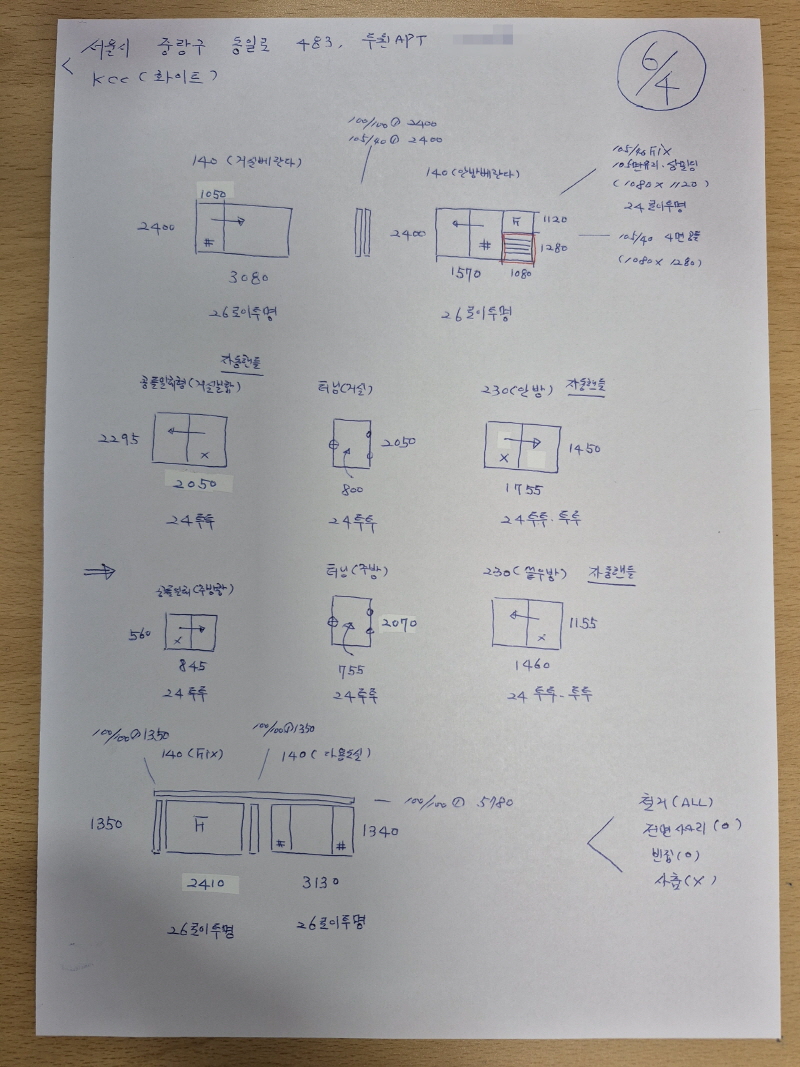 서울시 중랑구 동일로 483, 두원APT
KCC (화이트)
6/4
100/100 ① 2400
105/40 ① 2400
140 (거실베란다)
1050
2400
#
3080
26로이투명
140 (안방베란다)
2400
#
F
1120
1280
1570
1080
26로이투명
105/40 FIX
(1080 x 1120)
24로이투명
105/40
(1080 x 1280)
자동핸들
2295
x
2050
24투투
터닝(거실)
2050
800
24투투
230(안방) 자동핸들
1450
x
1755
24투투·투투
560
x
845
24투투
터닝(주방)
2070
755
24투투
230( ) 자동핸들
1155
x
1460
24투투-투투
100/100 ① 1350
140 (FIX)
1350
F
2410
26로이투명
100/100 ① 1350
140 (다용도실)
# #
1340
3130
26로이투명
100/100 ① 5780
철거(ALL)
전면 사다리 (o)
빈집(o)
사춤(x)